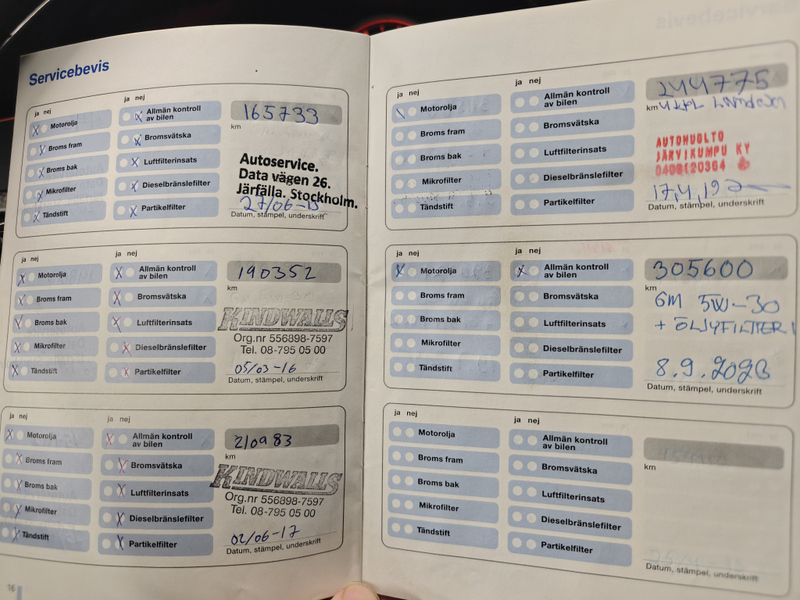 Servicebevis
ja nej
ja nej
Motorolja
Broms fram
Broms bak
Mikrofilter
Tändstift
Allmän kontroll
av bilen
Bromsvätska
Luftfilterinsats
Dieselbränslefilter
Partikelfilter
165733
km
Autoservice.
Data vägen 26.
Järfälla. Stockholm.
27/06-15
Datum, stämpel, underskrift
ja nej
ja nej
Motorolja
Broms fram
Broms bak
Mikrofilter
Tändstift
Allmän kontroll
av bilen
Bromsvätska
Luftfilterinsats
Dieselbränslefilter
Partikelfilter
190352
km
KINDWALLS
Org.nr 556898-7597
Tel. 08-795 05 00
05/03-16
Datum, stämpel, underskrift
ja nej
ja nej
Motorolja
Broms fram
Broms bak
Mikrofilter
Tändstift
Allmän kontroll
av bilen
Bromsvätska
Luftfilterinsats
Dieselbränslefilter
Partikelfilter
210983
km
KINDWALLS
Org.nr 556898-7597
Tel. 08-795 05 00
02/06-17
Datum, stämpel, underskrift
16
ja nej
ja nej
Motorolja
Broms fram
Broms bak
Mikrofilter
Tändstift
Allmän kontroll
av bilen
Bromsvätska
Luftfilterinsats
Dieselbränslefilter
Partikelfilter
244775
km
AUTOHUOLTO
JÄRVIKUMPU KY
0400120364
17,4,19
Datum, stämpel, underskrift
ja nej
ja nej
Motorolja
Broms fram
Broms bak
Mikrofilter
Tändstift
Allmän kontroll
av bilen
Bromsvätska
Luftfilterinsats
Dieselbränslefilter
Partikelfilter
305600
km
GM 5W-30
+ ÖLJYFILTTERI
8.9.2023
Datum, stämpel, underskrift
ja nej
ja nej
Motorolja
Broms fram
Broms bak
Mikrofilter
Tändstift
Allmän kontroll
av bilen
Bromsvätska
Luftfilterinsats
Dieselbränslefilter
Partikelfilter
km
Datum, stämpel, underskrift